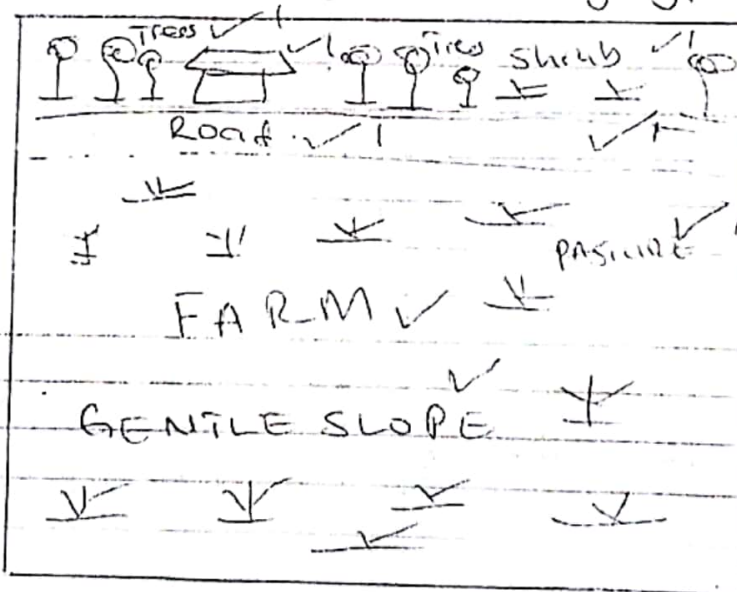 Trees 1
1 Trees Shrub 1
Road 1
PASTURE
FARM
GENTLE SLOPE